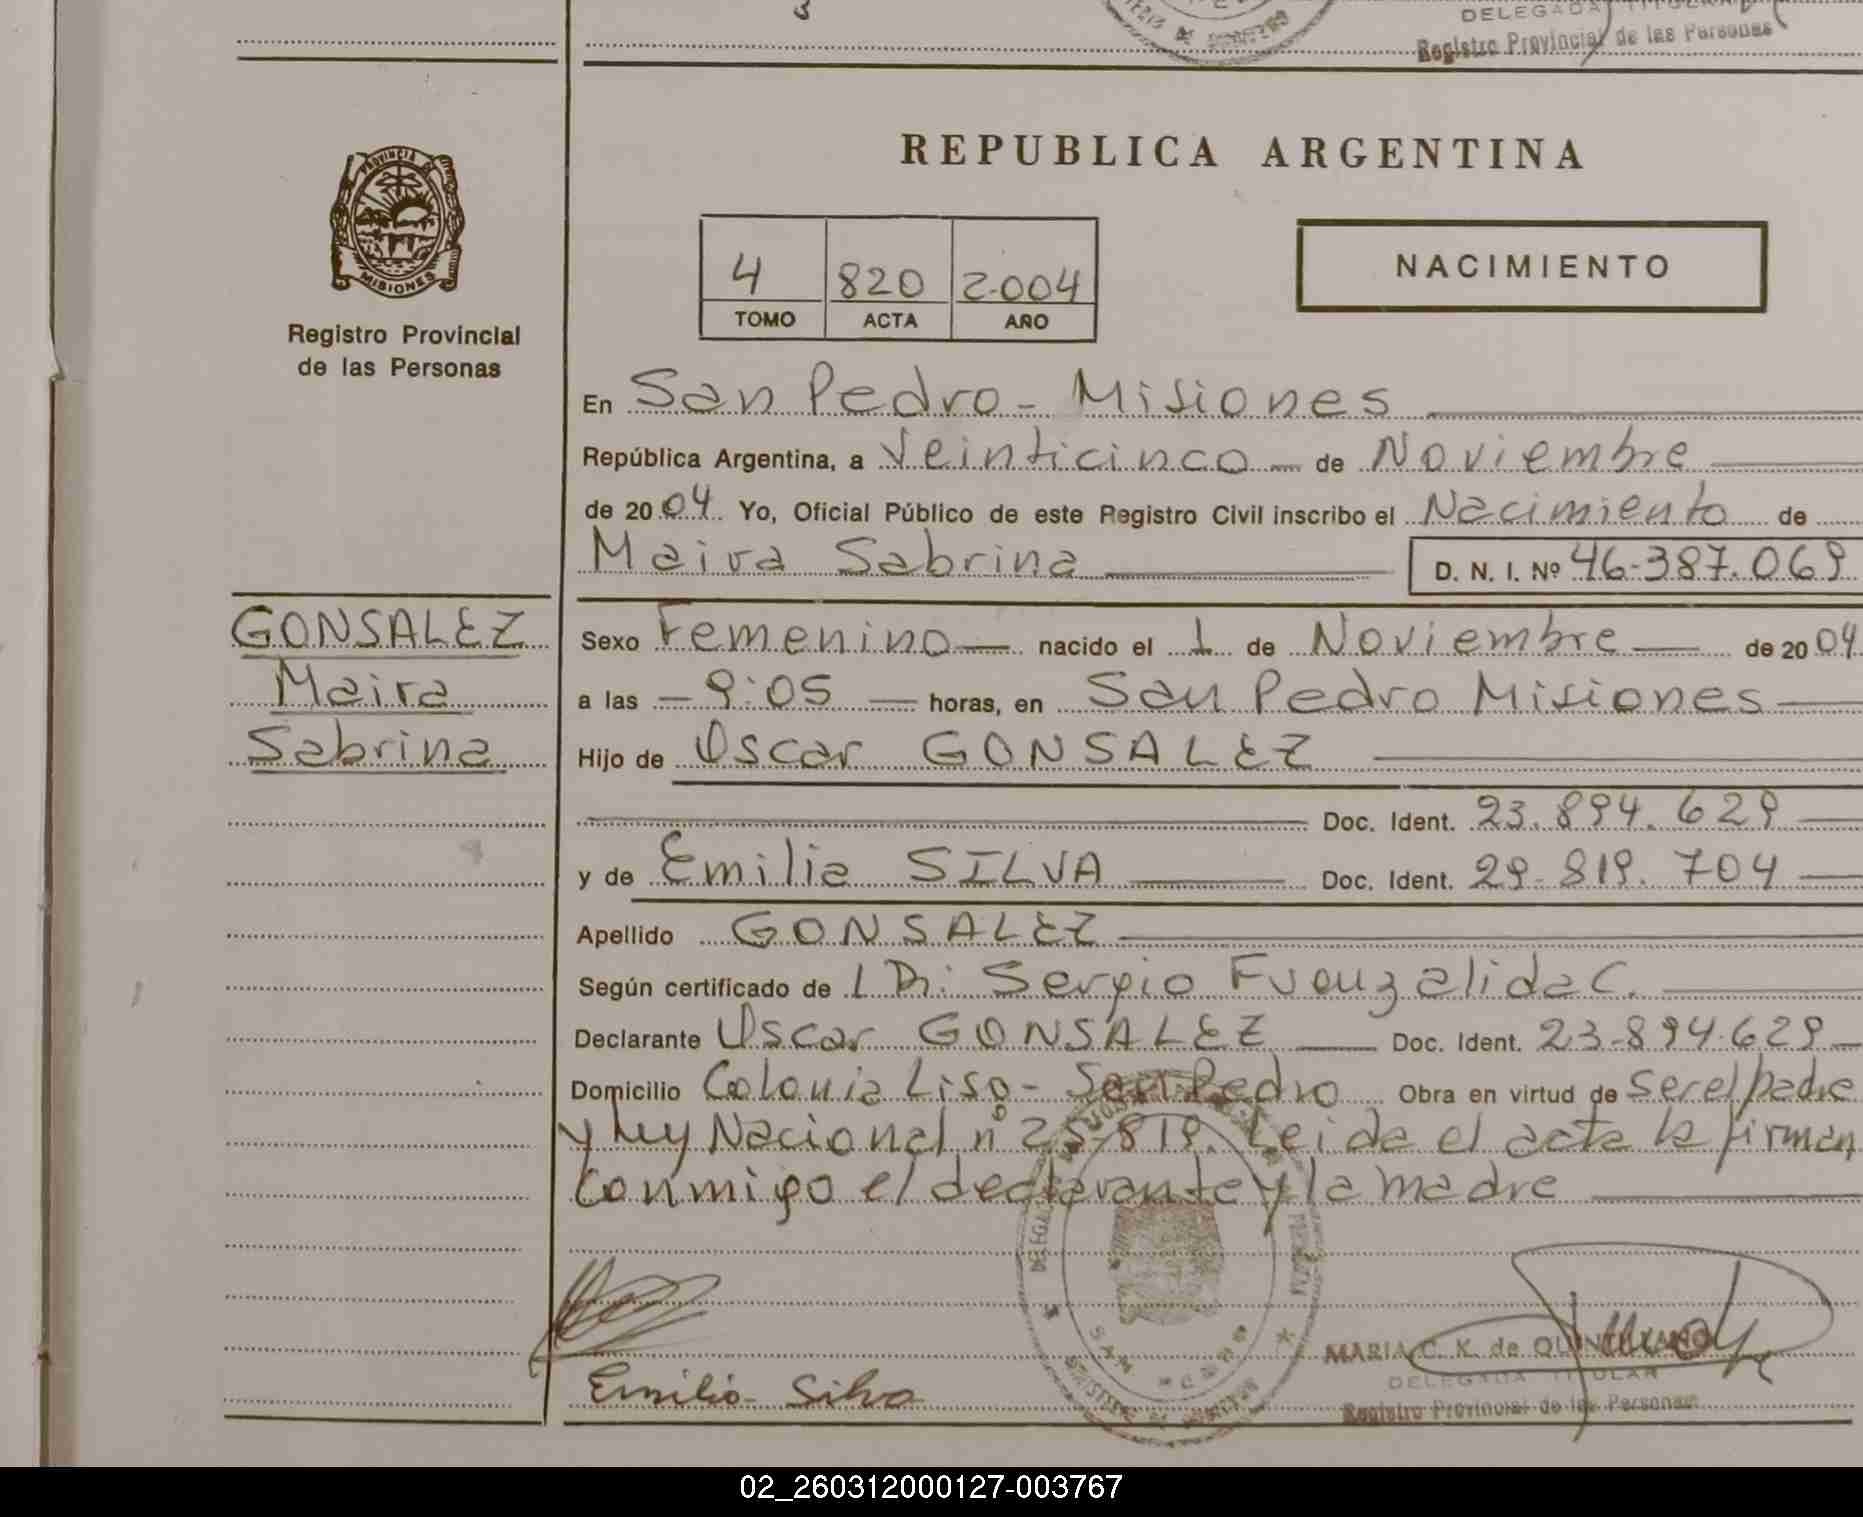 DELEGADA TITULAR
Registro Provincial de las Personas
REPUBLICA ARGENTINA
PROVINCIA DE
MISIONES
Registro Provincial
de las Personas
4 820 2.004
TOMO ACTA AÑO
NACIMIENTO
En San Pedro - Misiones
República Argentina, a Veinticinco de Noviembre
de 2004 Yo, Oficial Público de este Registro Civil inscribo el Nacimiento de
Maira Sabrina D. N. I. Nº 46-387.069
GONSALEZ
Maira
Sabrina
Sexo Femenino nacido el 1 de Noviembre de 2004
a las - 9:05 horas, en San Pedro Misiones
Hijo de Oscar GONSALEZ
Doc. Ident. 23.894.629
y de Emilia SILVA Doc. Ident. 29-819.704
Apellido GONSALEZ
Según certificado de Dr: Sergio Fuenzalida C.
Declarante Oscar GONSALEZ Doc. Ident. 23-894.629
Domicilio Colonia Liso - San Pedro Obra en virtud de ser el padre
y ley Nacional nº 25-819. Leida el acta la firman
conmigo el declarante y la madre
Emilia Silva
MARIA C. K. de QUINTILIANO
DELEGADA TITULAR
Registro Provincial de las Personas
02_260312000127-003767